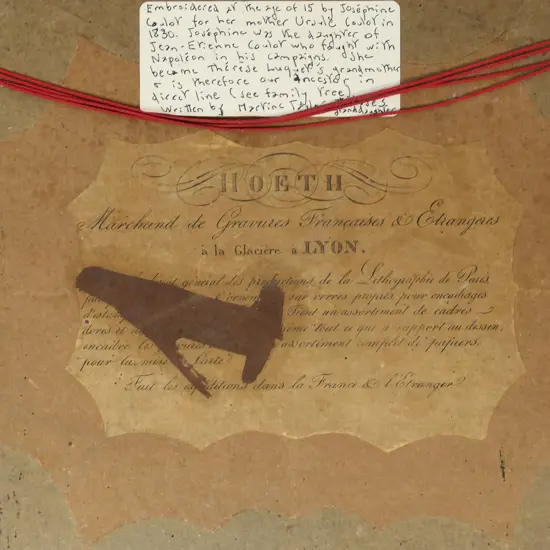 Embroidered at the age of 15 by Joséphine
Coulot for her mother Ursule Coulot in
1830. Joséphine was the daughter of
Jean-Etienne Coulot who fought with
Napoleon in his campaigns. She
became Thérèse Luquet's grandmother
& is therefore our ancestor in
direct line (see family tree)
Written by Martine
granddaughter
HOETH
Marchand de Gravures Françaises & Etrangeres
à la Glacière a LYON.
général des productions de la Lithographie de Paris
sur verres propres pour encadrages
Tient un assortiment de cadres
dorés et tout ce qui a rapport au dessin,
encadre les assortiment complet de papiers,
pour la mise Carte
Fait les expéditions dans la France & l'Etranger